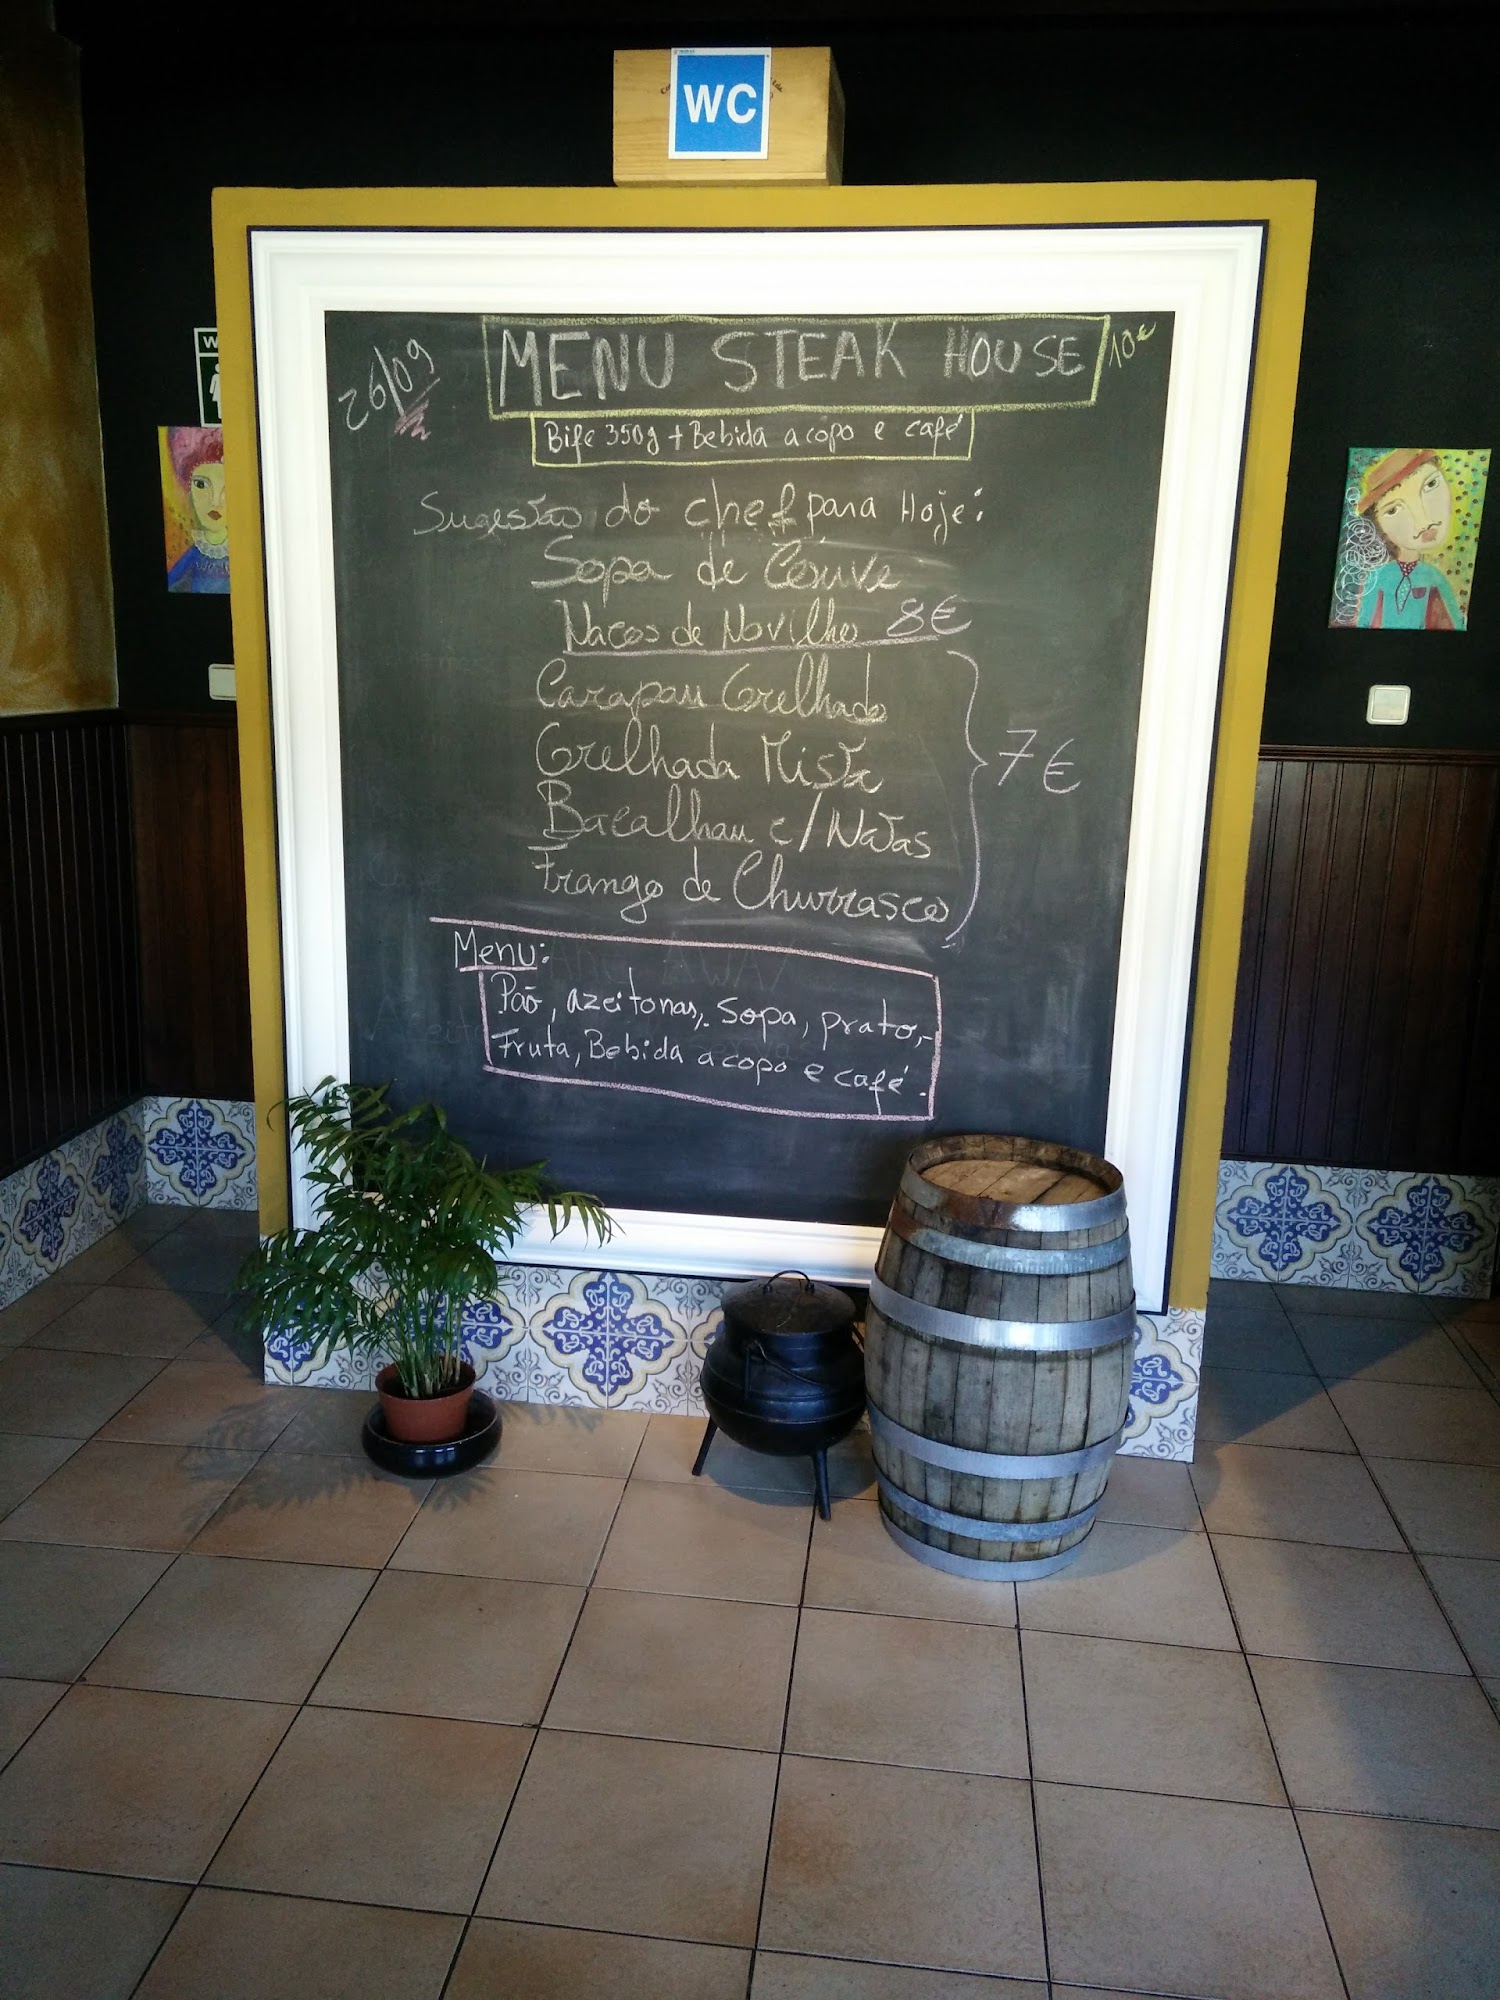 WC
26/09
MENU STEAK HOUSE 10€
Bife 350g + Bebida a copo e café
Sugestão do chef para Hoje:
Sopa de Couve
Nacos de Novilho 8€
Carapau Grelhado
Grelhada Mista
7€
Bacalhau c/Natas
Frango de Churrasco
Menu:
Pão, azeitonas, sopa, prato,
Fruta, Bebida a copo e café.